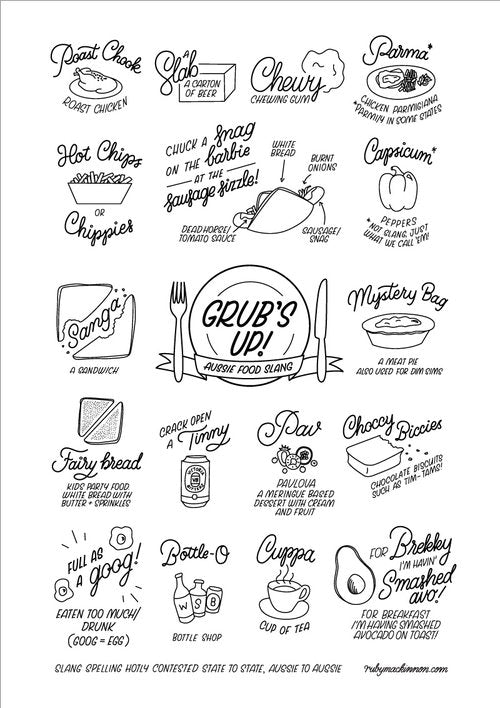 Roast Chook
ROAST CHICKEN
A
Slab
A CARTON
OF BEER
Chewy
CHEWING GUM
Parma*
CHICKEN PARMIGIANA
*PARMY IN SOME STATES
Hot Chips
OR
Chippies
CHUCK A snag
ON THE barbie
AT THE
sausage sizzle!
WHITE
BREAD
BURNT
ONIONS
DEADHORSE/
TOMATO SAUCE
SAUSAGE/
SNAG
Capsicum*
PEPPERS
*NOT SLANG, JUST
WHAT WE CALL 'EM!
Sanga
A SANDWICH
GRUB'S
UP!
AUSSIE FOOD SLANG
Mystery Bag
A MEAT PIE
ALSO USED FOR DIM SIMS
Fairy bread
KIDS PARTY FOOD.
WHITE BREAD WITH
BUTTER + SPRINKLES
CRACK OPEN
A Tinny
VICTORIA
VB
BITTER
Pav
PAVLOVA
A MERINGUE BASED
DESSERT WITH CREAM
AND FRUIT
Choccy Biccies
CHOCOLATE BISCUITS
SUCH AS TIM-TAMS!
FULL AS
a goog!
EATEN TOO MUCH/
DRUNK
(GOOG = EGG)
Bottle-O
W S B
BOTTLE SHOP
Cuppa
CUP OF TEA
FOR Brekky
I'M HAVIN'
Smashed
avo!
FOR BREAKFAST
I'M HAVING SMASHED
AVOCADO ON TOAST!
SLANG SPELLING HOTLY CONTESTED STATE TO STATE, AUSSIE TO AUSSIE
rubymackinnon.com